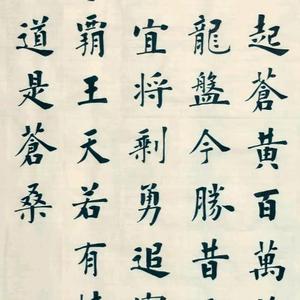 起蒼黄百萬
龍盤今勝昔
宜将剩勇追
霸王天若有
道是蒼桑